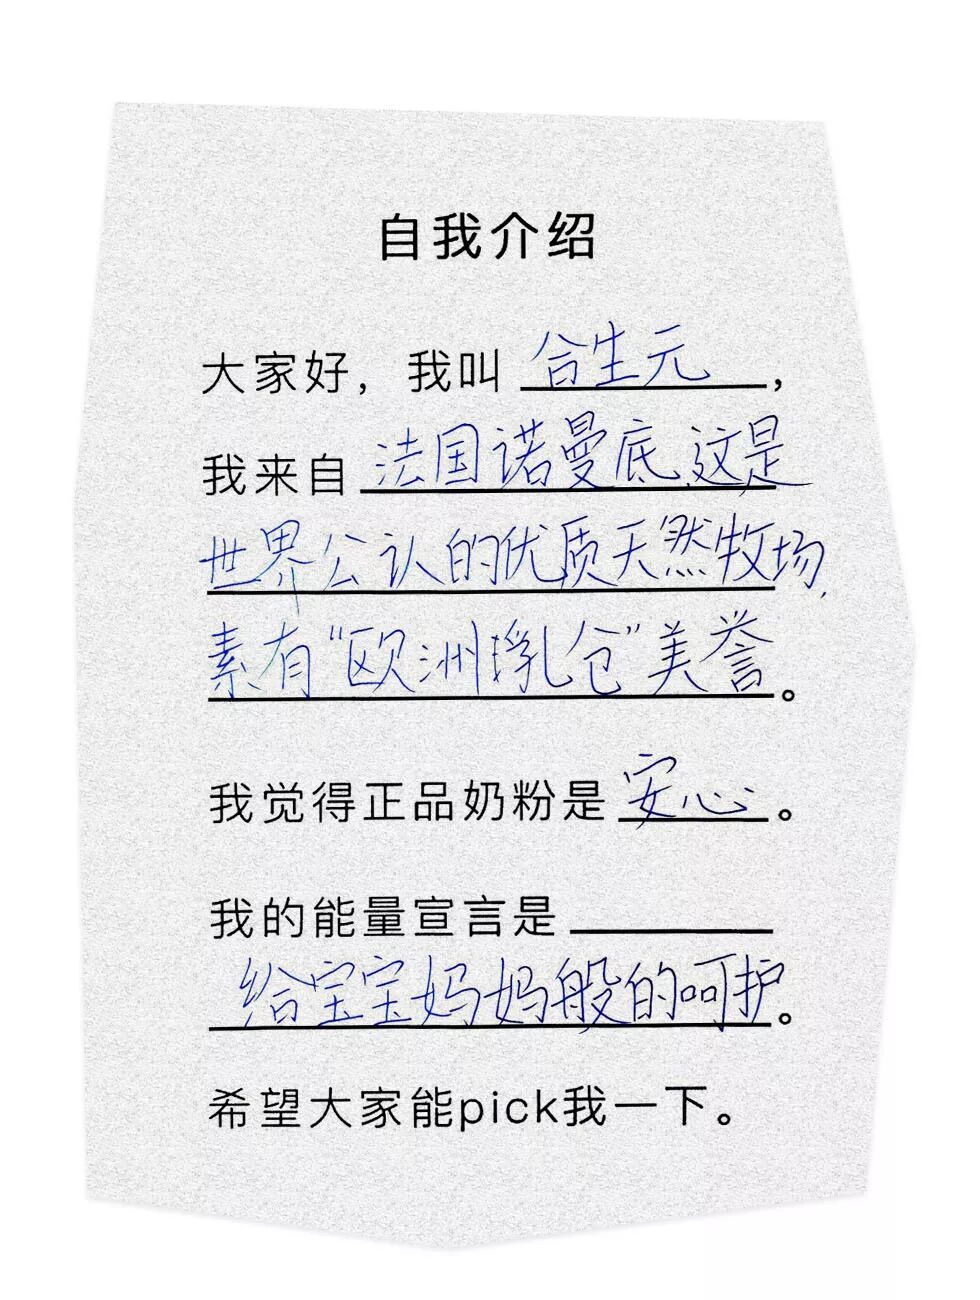 自我介绍
大家好，我叫 合生元，
我来自 法国诺曼底,这是
世界公认的优质天然牧场,
素有“欧洲乳仓”美誉。
我觉得正品奶粉是 安心。
我的能量宣言是
给宝宝妈妈般的呵护。
希望大家能pick我一下。